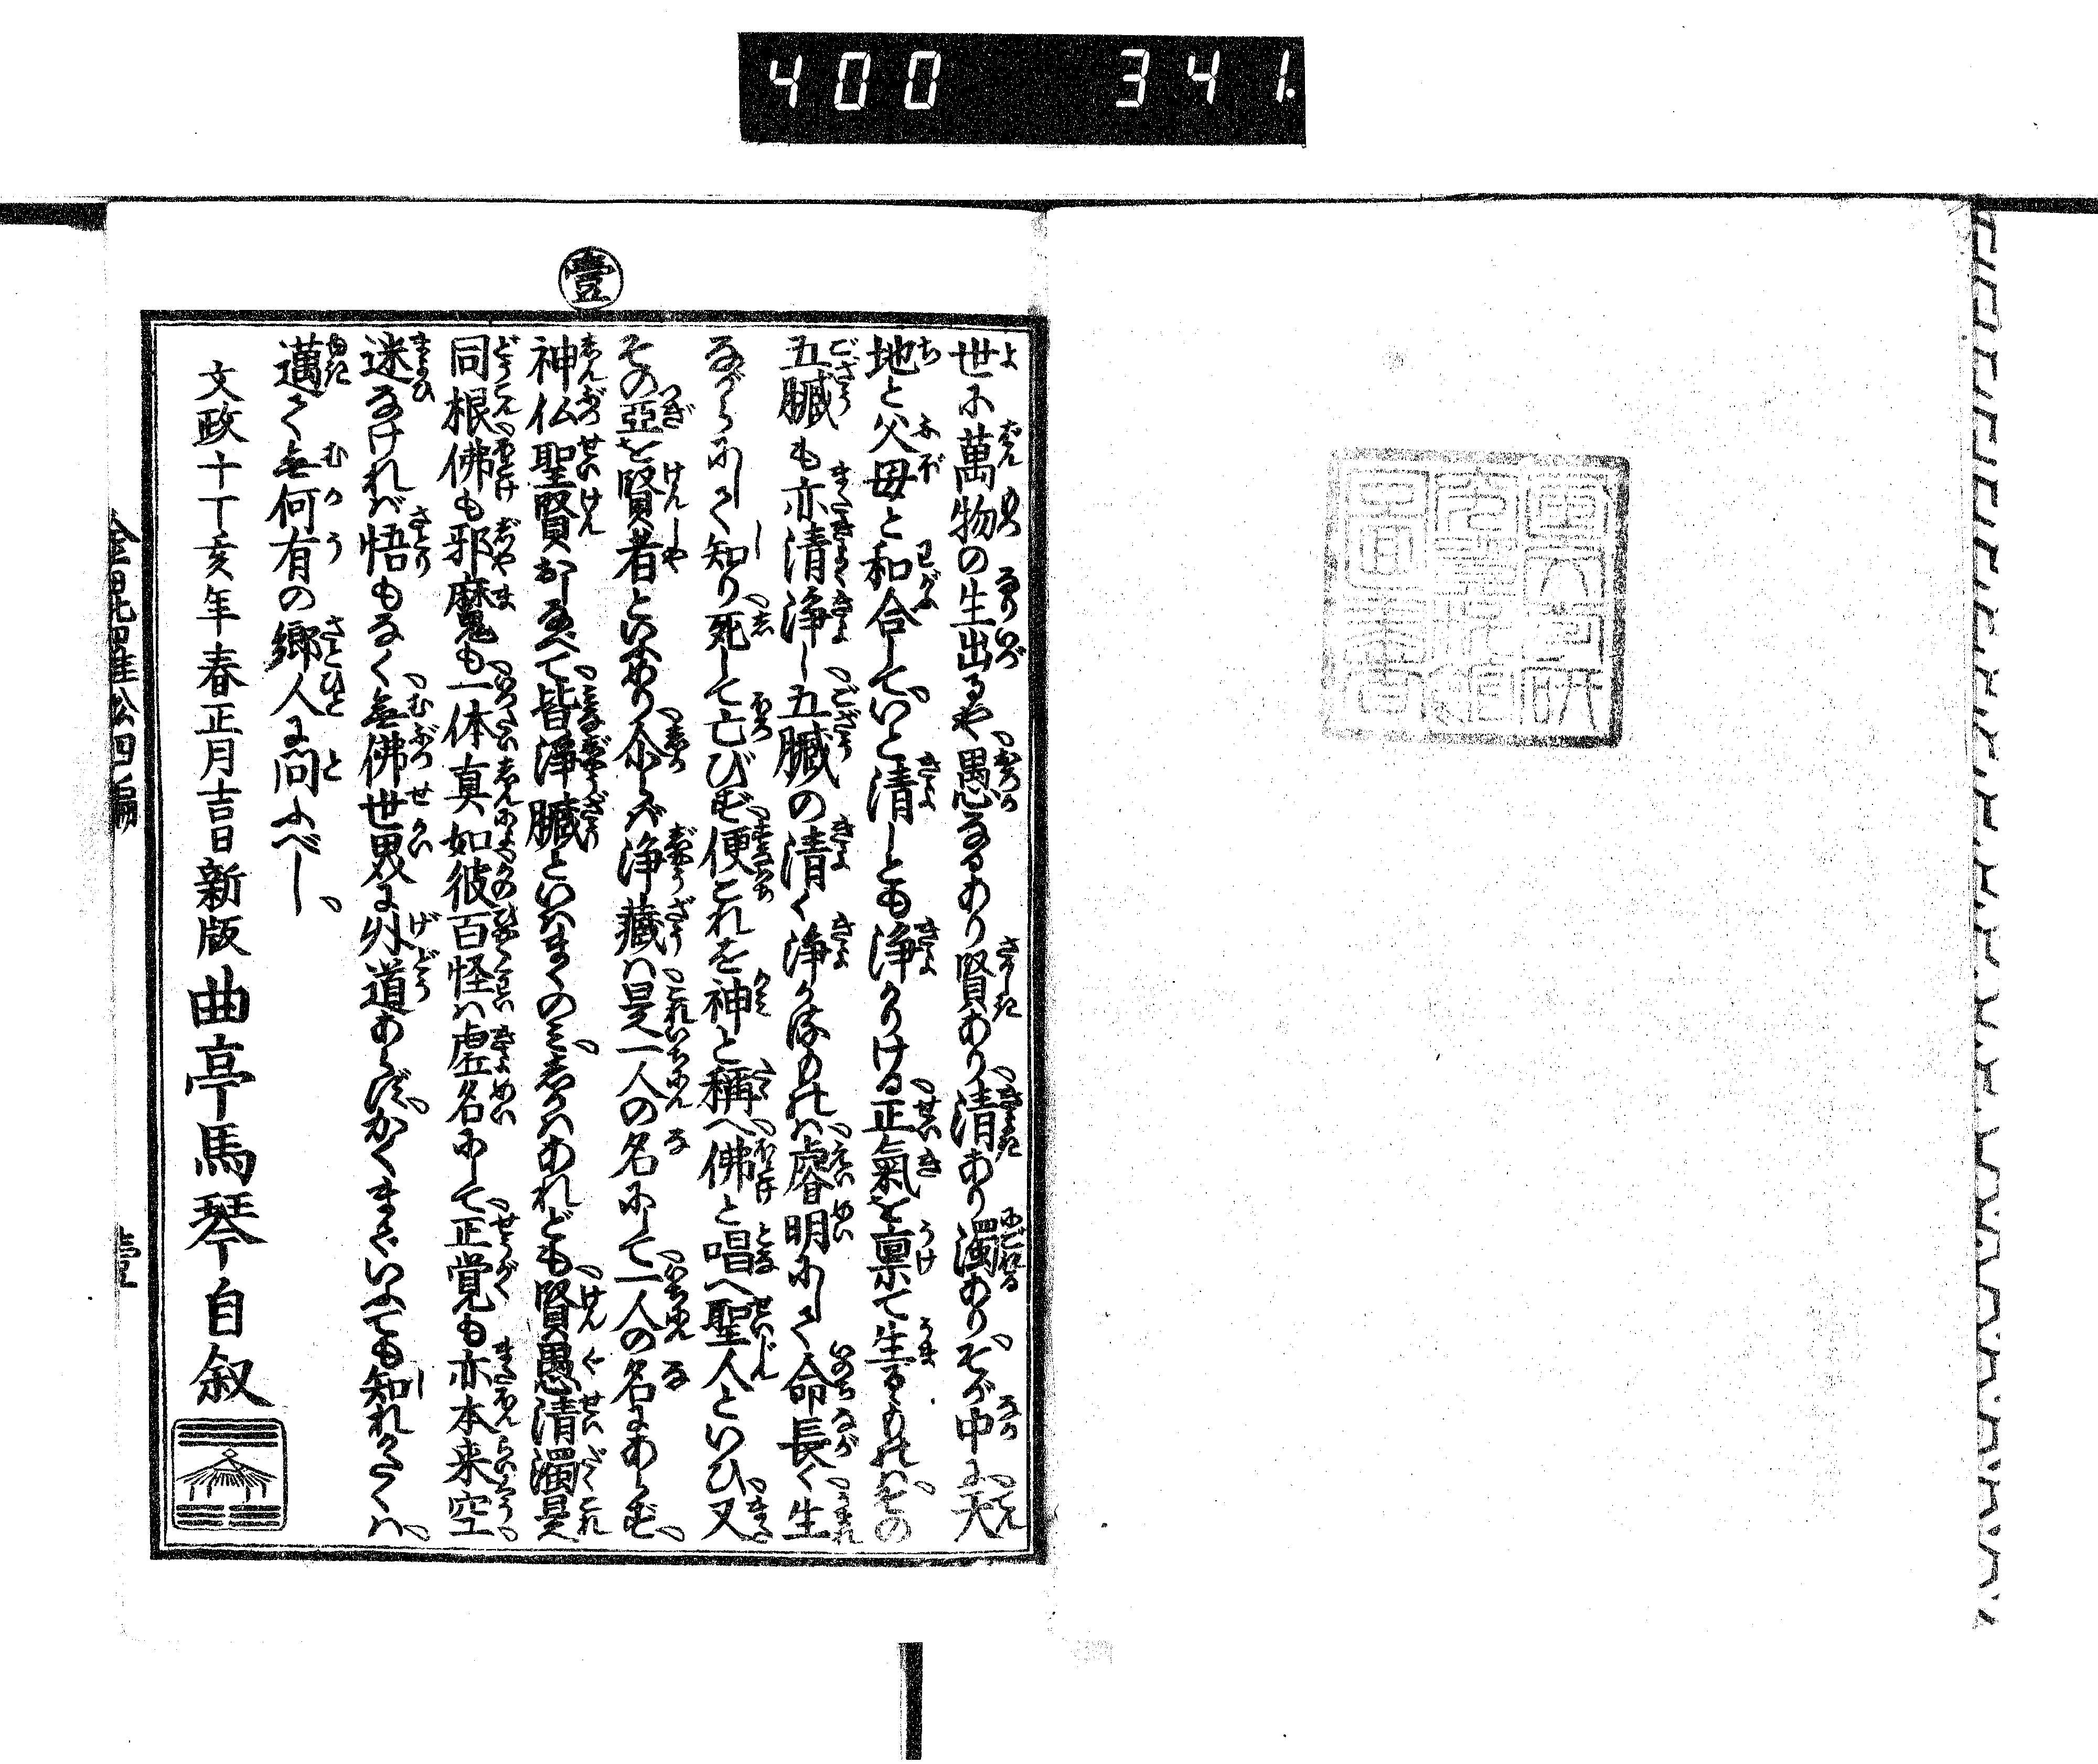 400 341.
壹
世に萬物の生出るや愚なるあり賢あり清あり濁ありそが中に天
地と父母と和合していと清しとも浄かりける正氣を禀て生るゝものはその
五臓も亦清浄し五臓の清く浄かるものは睿明にして命長く生
ながらにして知り死して亡びず便これを神と稱へ佛と唱へ聖人といひ又
その亞を賢者といふめり尒らば浄藏は是一人の名にして一人の名にあらず
神仏聖賢おしなべて皆浄臓といはまくのみしかはあれども賢愚清濁是
同根佛も邪魔も一体真如彼百怪は虚名にして正覚も亦本来空
迷なければ悟もなく無佛世界に外道あらずかくまでいふても知れかたくは
邁て無何有の郷人に問ふべし
文政十丁亥年春正月吉日新版 曲亭馬琴自叙
壹